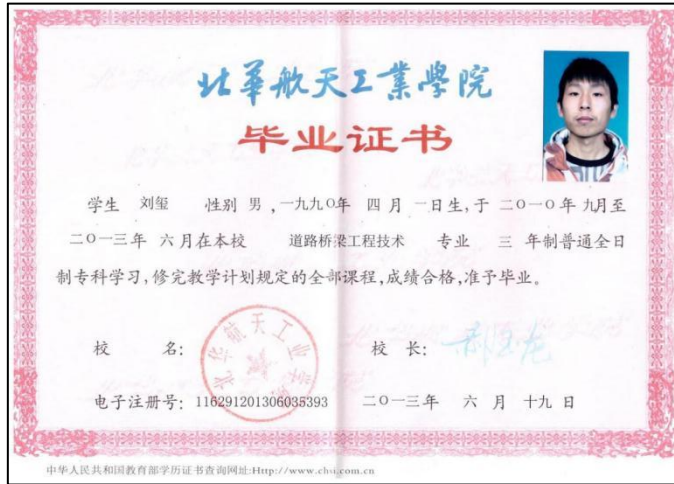 北華航天工業學院
毕业证书
学生 刘玺 性别 男，一九九〇年 四月 一日生，于 二〇一〇年 九月至
二〇一三年 六月在本校 道路桥梁工程技术 专业 三 年制普通全日
制专科学习，修完教学计划规定的全部课程，成绩合格，准予毕业。
校 名： 校 长：
北华航天工业学院
电子注册号：116291201306035393 二〇一三年 六 月 十九 日
中华人民共和国教育部学历证书查询网址:Http://www.chsi.com.cn